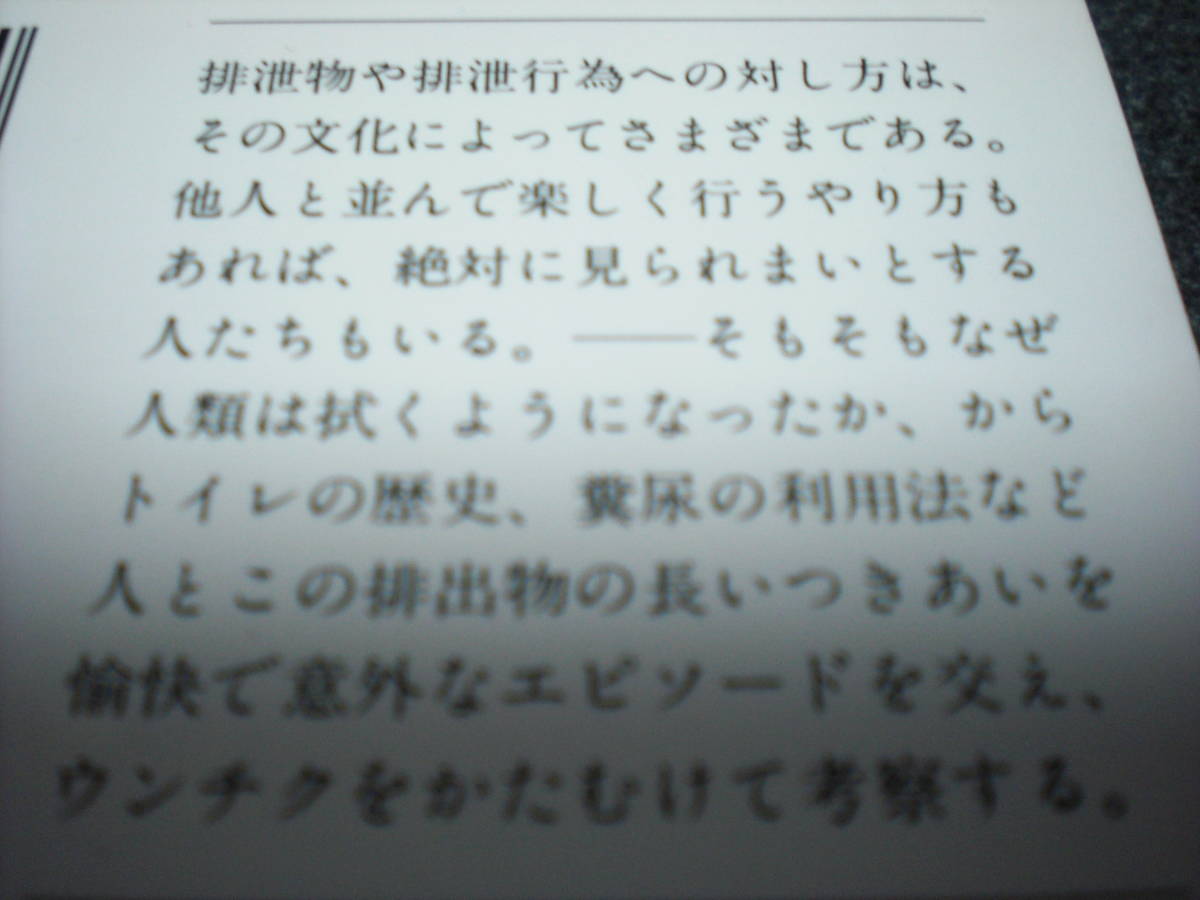 排泄物や排泄行為への対し方は、
その文化によってさまざまである。
他人と並んで楽しく行うやり方も
あれば、絶対に見られまいとする
人たちもいる。――そもそもなぜ
人類は拭くようになったか、から
トイレの歴史、糞尿の利用法など
人とこの排出物の長いつきあいを
愉快で意外なエピソードを交え、
ウンチクをかたむけて考察する。